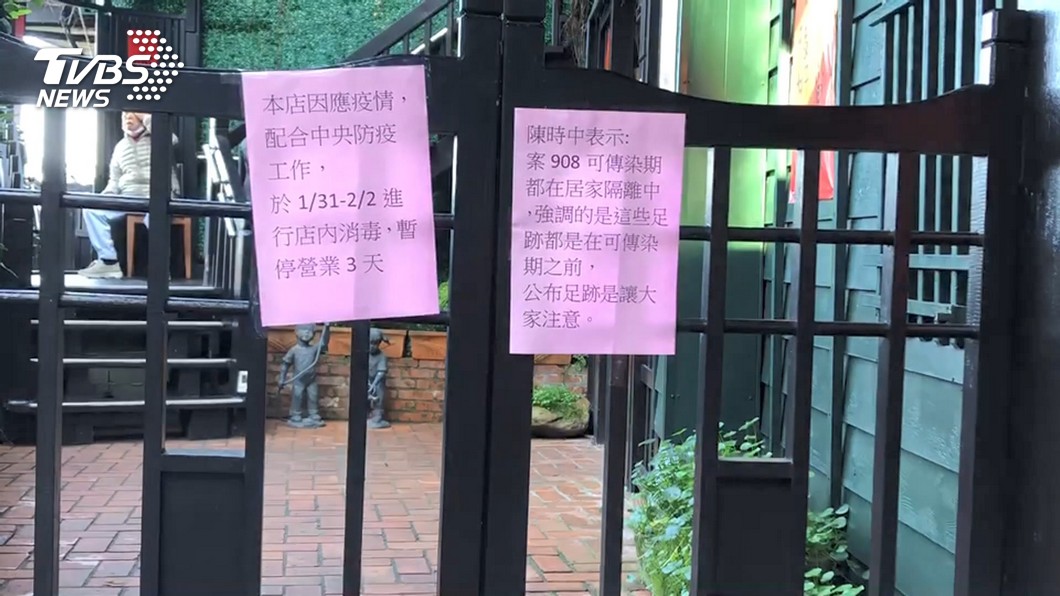 TVBS
NEWS
本店因應疫情，
配合中央防疫
工作，
於 1/31-2/2 進
行店內消毒，暫
停營業 3 天
陳時中表示:
案 908 可傳染期
都在居家隔離中
，強調的是這些足
跡都是在可傳染
期之前，
公布足跡是讓大
家注意。